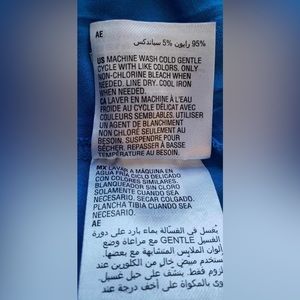 AE
95% رايون 5% سباندكس
US MACHINE WASH COLD GENTLE
CYCLE WITH LIKE COLORS. ONLY
NON-CHLORINE BLEACH WHEN
NEEDED. LINE DRY. COOL IRON
WHEN NEEDED.
CA LAVER EN MACHINE À L'EAU
FROIDE AU CYCLE DÉLICAT AVEC
COULEURS SEMBLABLES. UTILISER
UN AGENT DE BLANCHIMENT
NON CHLORÉ SEULEMENT AU
BESOIN. SUSPENDRE POUR
SÉCHER. REPASSER À BASSE
TEMPÉRATURE AU BESOIN.
MX LAVAR A MÁQUINA EN
AGUA FRÍA CICLO DELICADO
CON COLORES SIMILARES.
BLANQUEADOR SIN CLORO
SOLAMENTE CUANDO SEA
NECESARIO. SECAR COLGADO.
PLANCHA TIBIA CUANDO SEA
NECESARIO.
AE
يُغسل في الغسالة بماء بارد على دورة
الغسيل GENTLE مع مراعاة وضع
ألوان الملابس المتشابهة مع بعضها.
مبيض خالٍ من الكلورين عند
لزوم فقط. ينشف على حبل غسيل.
بالمكواة على أخف درجة عند